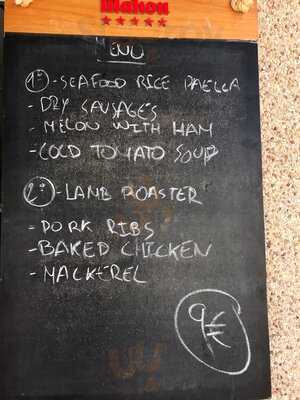 Mahou
★★★★★
MENU
1º - SEAFOOD RICE PAELLA
- DRY SAUSAGES
- MELON WITH HAM
- COLD TOMATO SOUP
2º - LAMB ROASTER
- PORK RIBS
- BAKED CHICKEN
- MACKEREL
9€